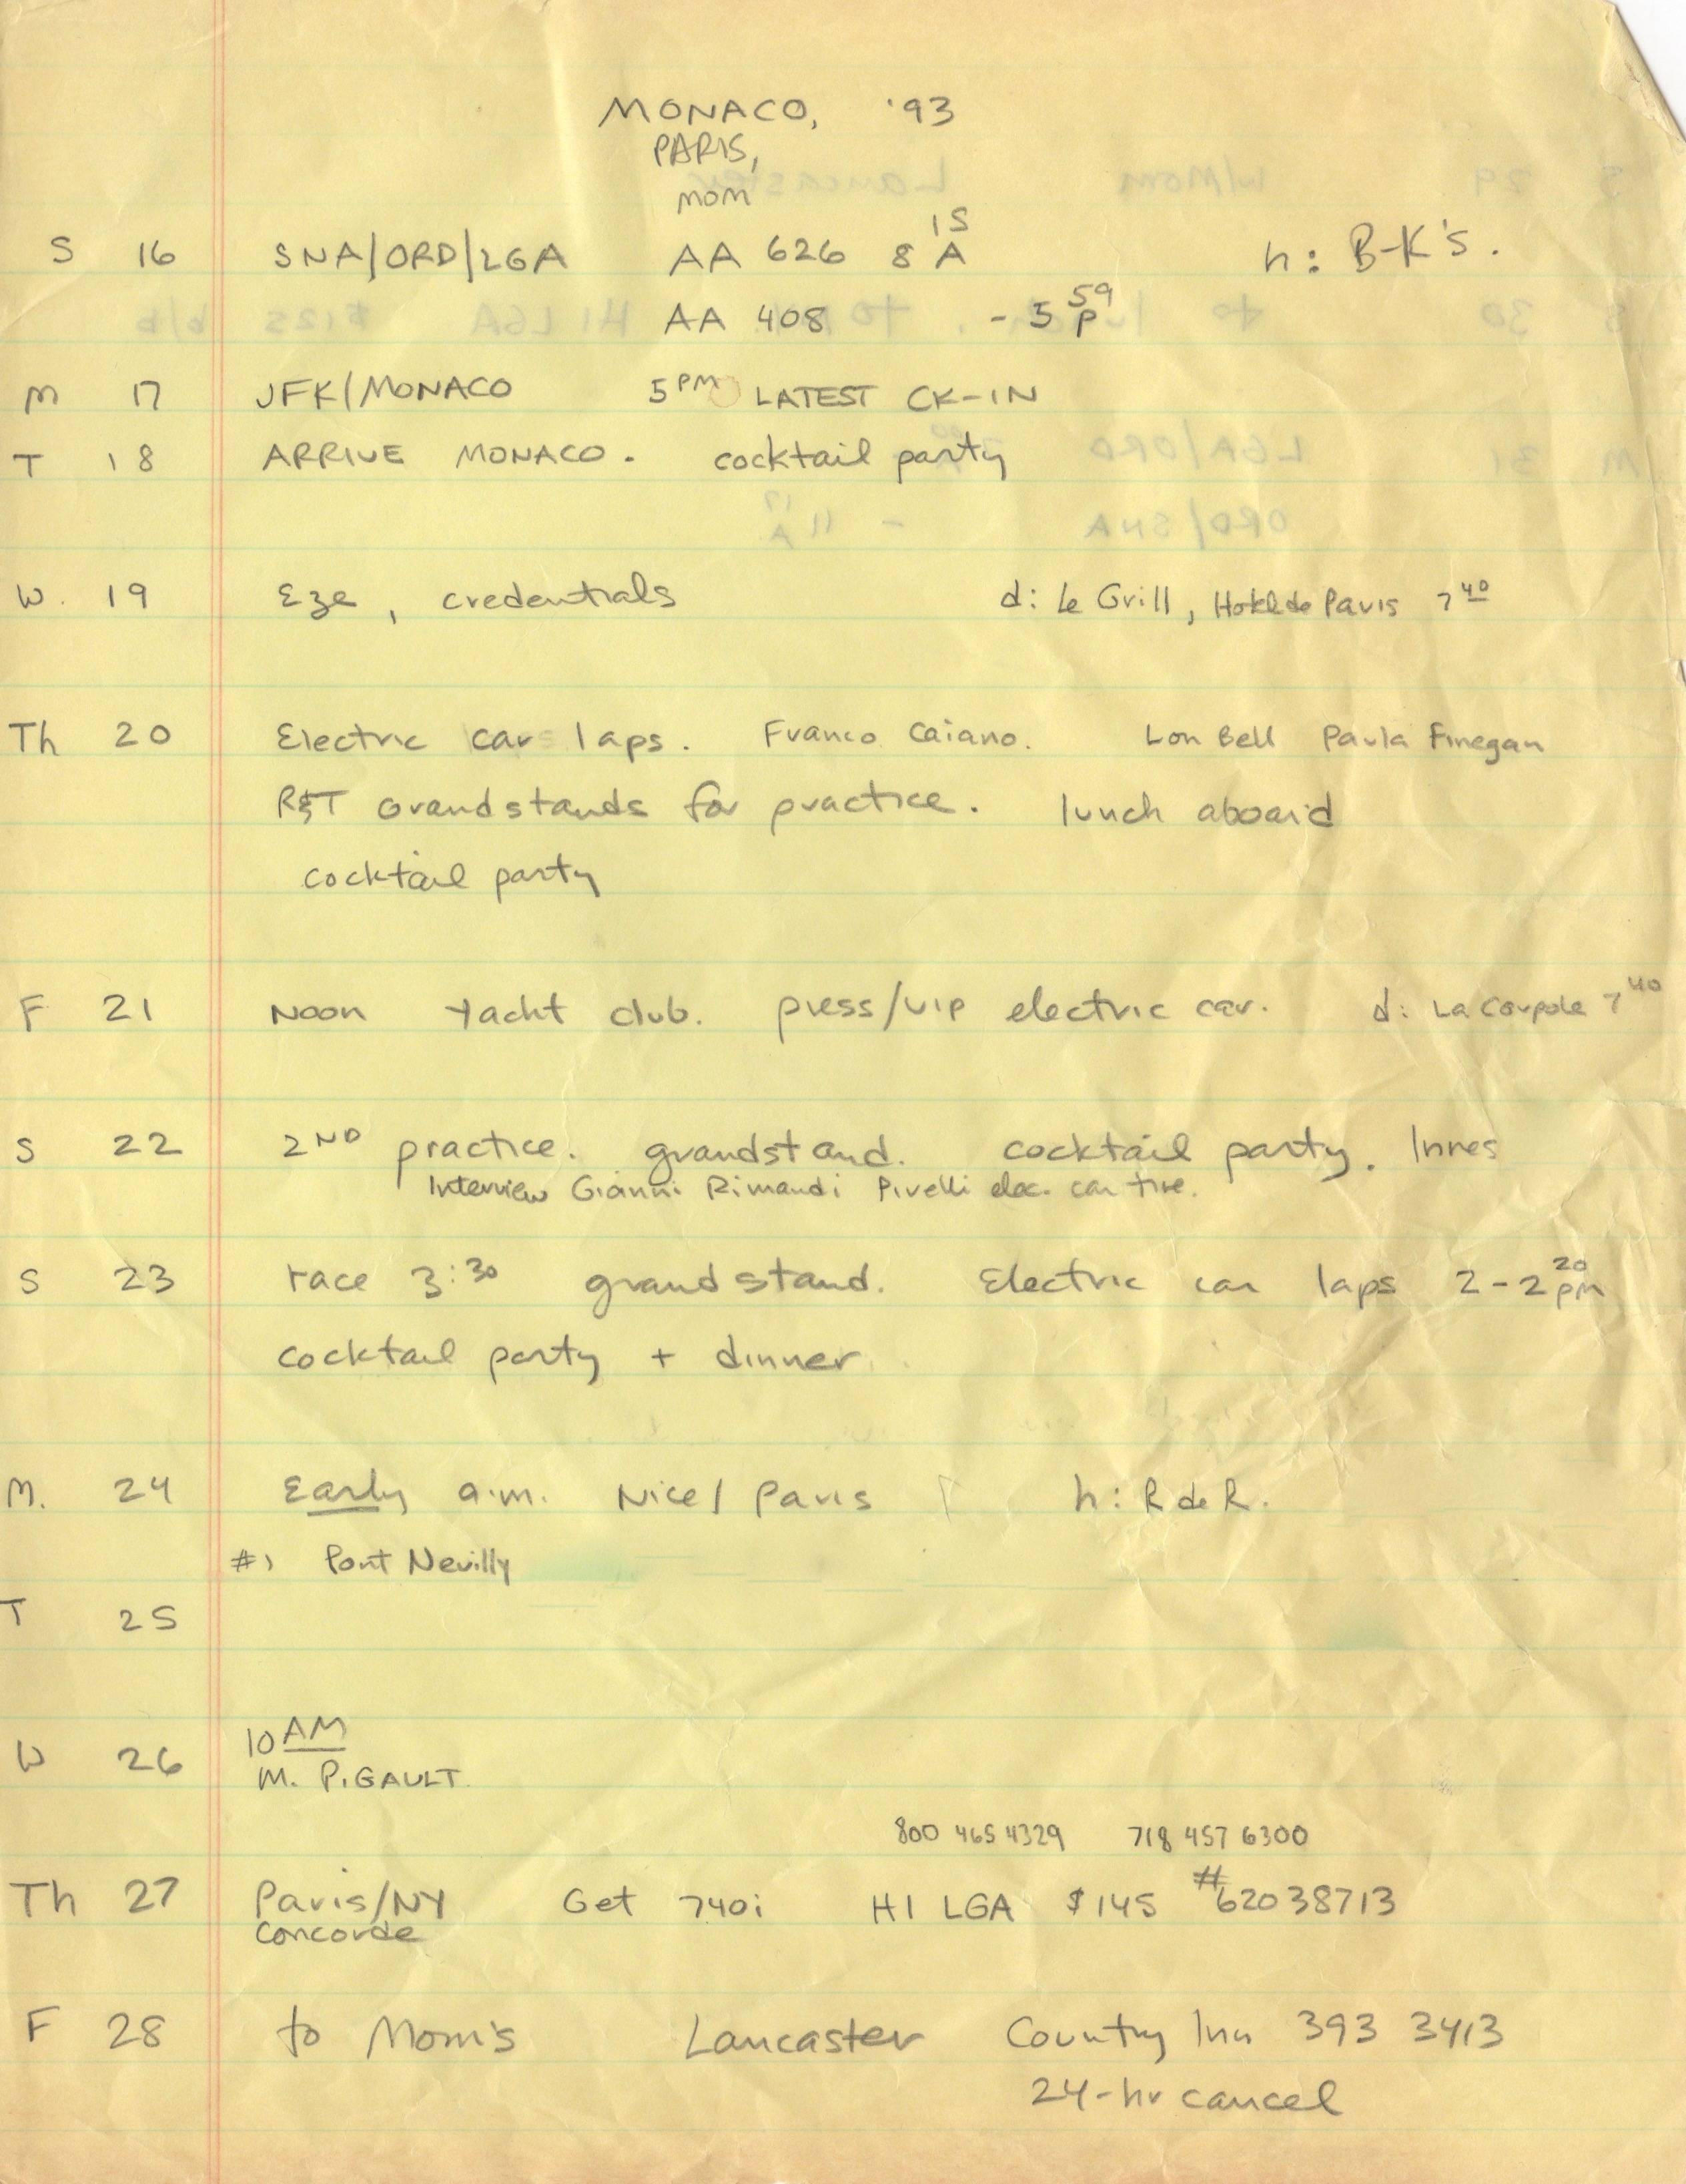 MONACO, '93
PARIS,
MOM
S 16 SNA/ORD/LGA AA 626 8 15 A h: B-K's.
AA 408 - 5 59 P
M 17 JFK/MONACO 5 PM LATEST CK-IN
T 18 ARRIVE MONACO. cocktail party
W. 19 Eze, credentials d: Le Grill, Hotel de Paris 7 40
Th 20 Electric car laps. Franco Caiano. Lon Bell Paula Finegan
R&T Grandstands for practice. lunch aboard
cocktail party
F 21 Noon Yacht club. press/VIP electric car. d: La Coupole 7 40
S 22 2ND practice. grandstand. cocktail party. Innes
Interview Gianni Rimandi Pirelli elec. car tire.
S 23 race 3:30 grandstand. Electric car laps 2-2 20 PM
cocktail party + dinner
M. 24 Early a.m. Nice/Paris h: R de R.
#1 Pont Nevilly
T 25
W 26 10 AM
M. PIGAULT
800 465 4329 718 457 6300
Th 27 Paris/NY Get 740i HI LGA $145 #62038713
Concorde
F 28 to Mom's Lancaster Country Inn 393 3413
24-hr cancel